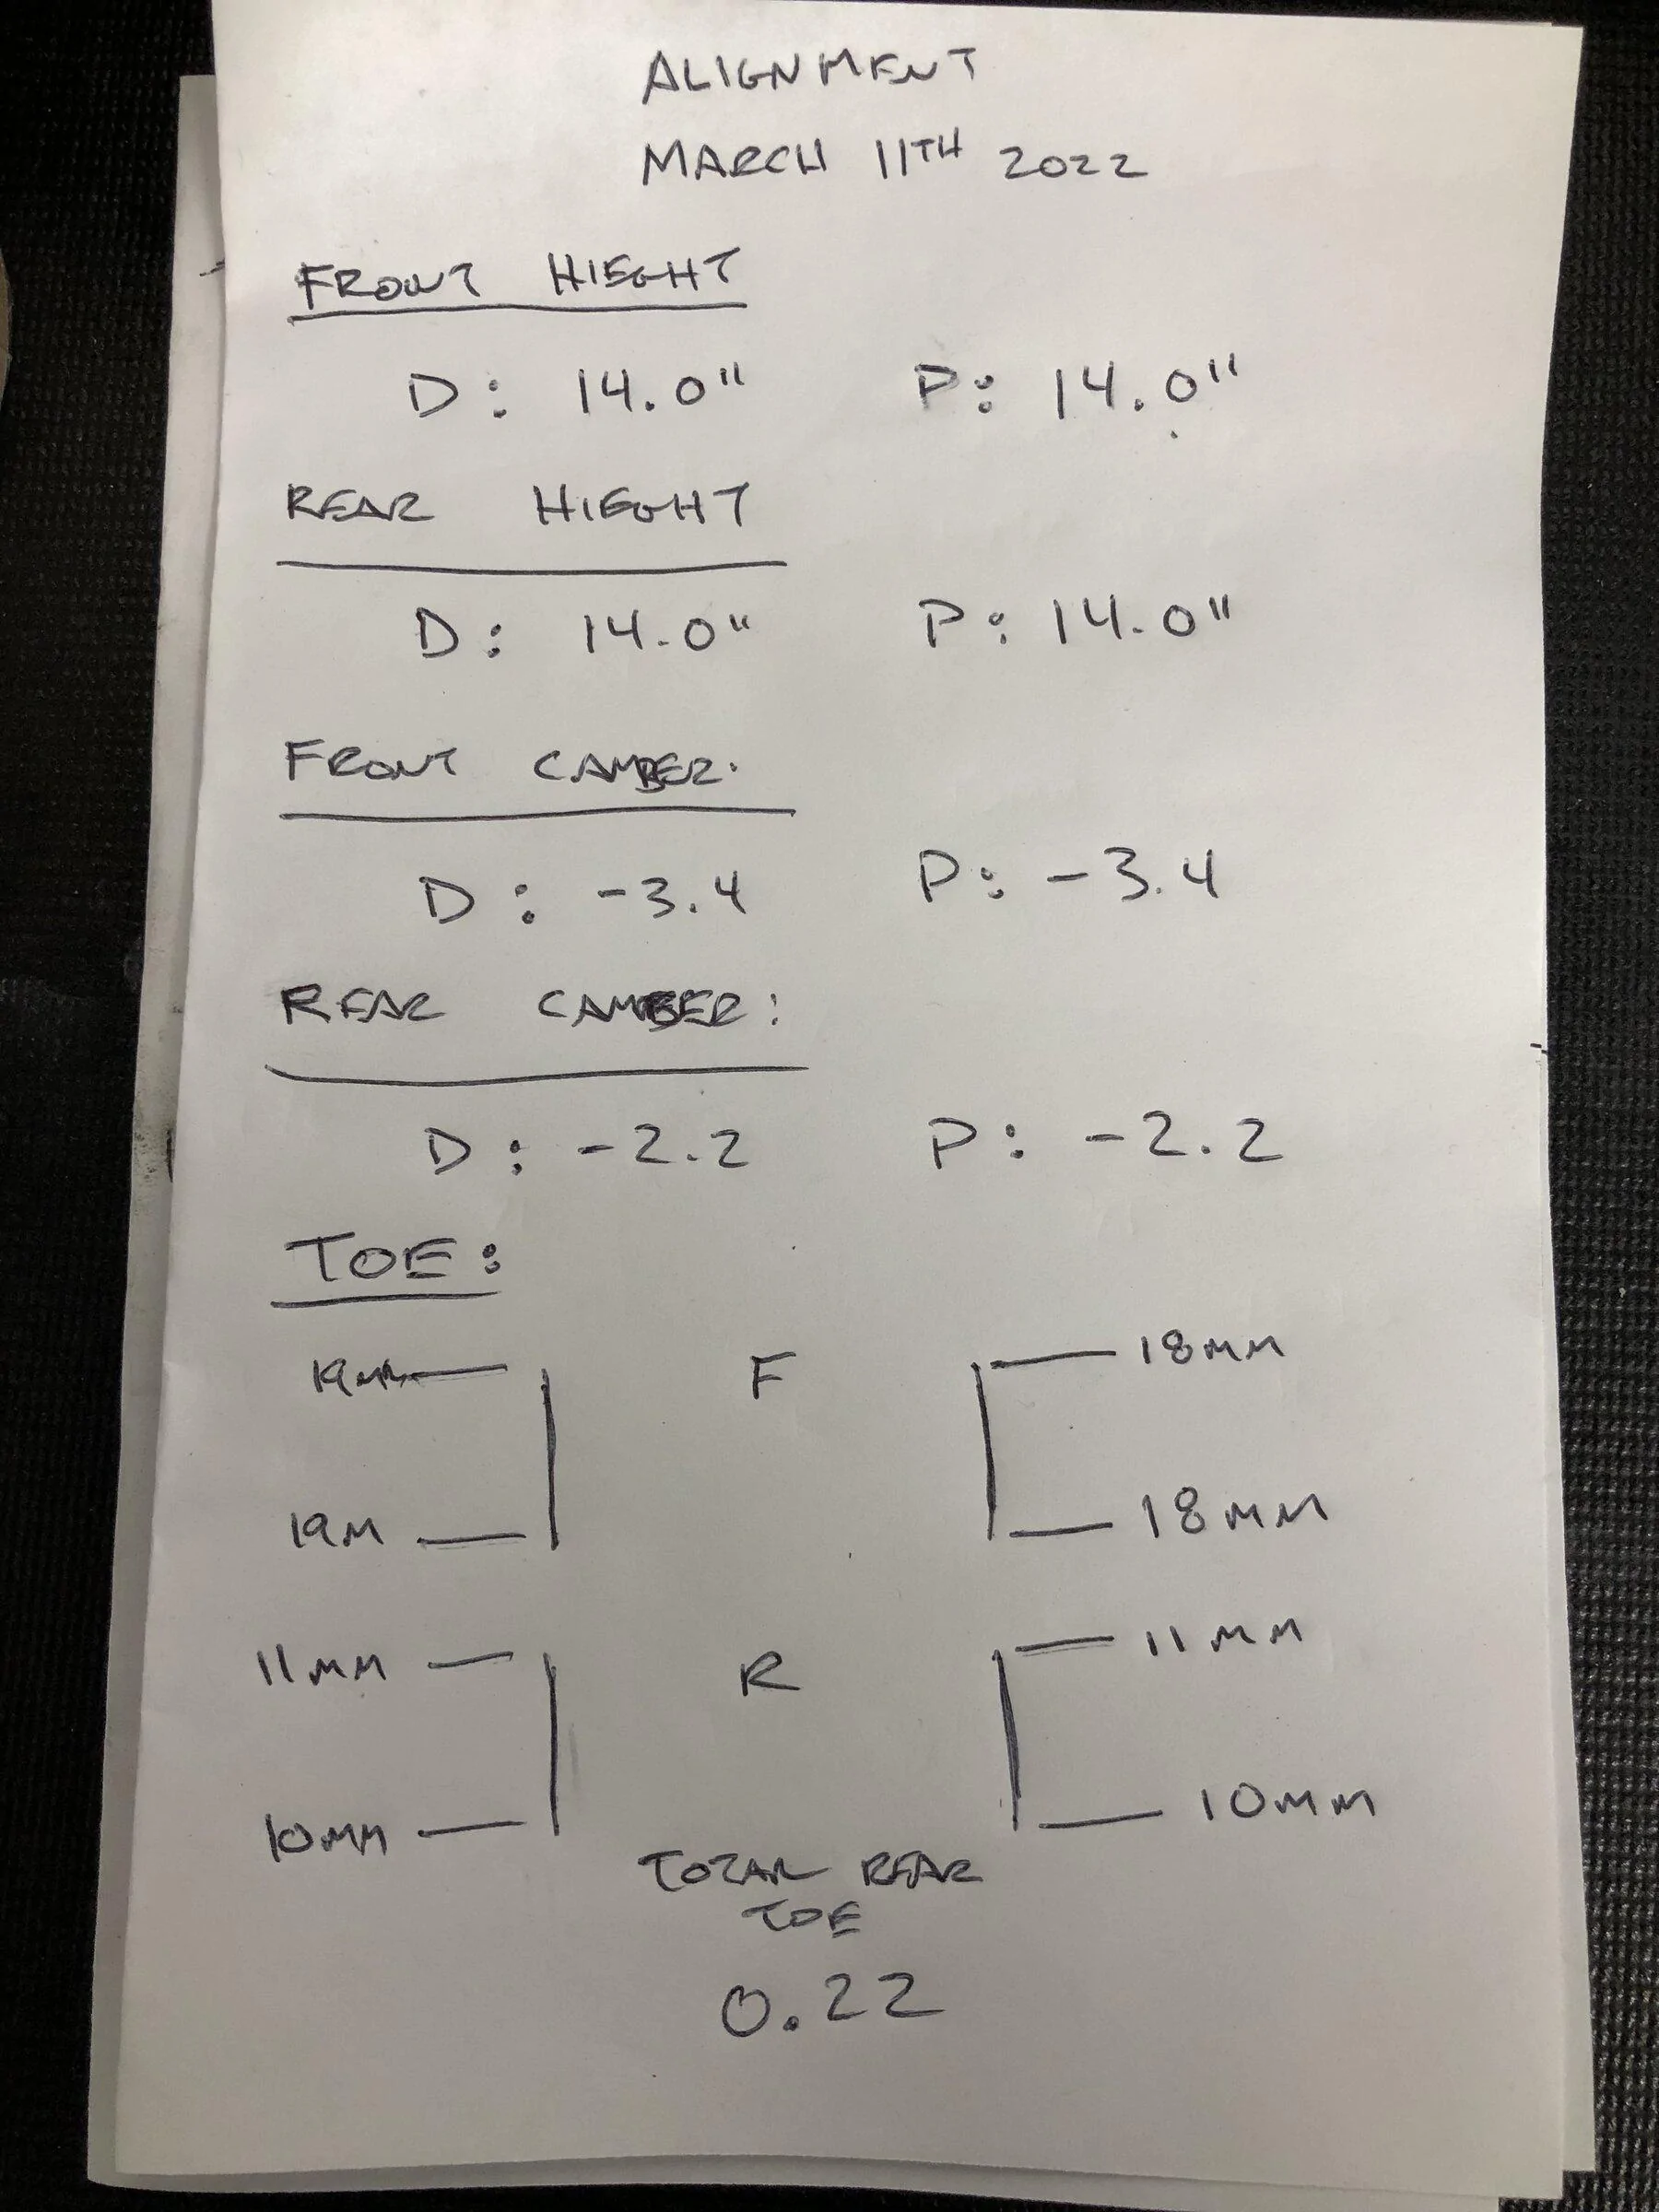 ALIGNMENT
MARCH 11TH 2022
FRONT HIEGHT
D: 14.0" P: 14.0"
REAR HIEGHT
D: 14.0" P: 14.0"
FRONT CAMBER:
D: -3.4 P: -3.4
REAR CAMBER:
D: -2.2 P: -2.2
TOE:
19MM F 18MM
19M 18MM
11MM R 11MM
10MM 10MM
TOTAL REAR
TOE
0.22